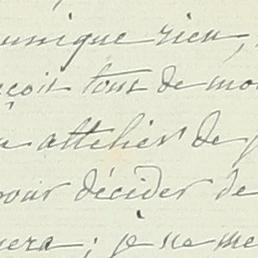 unique rien,
çoit tous de mo
attelier de
pour décider de
era ; je ne me